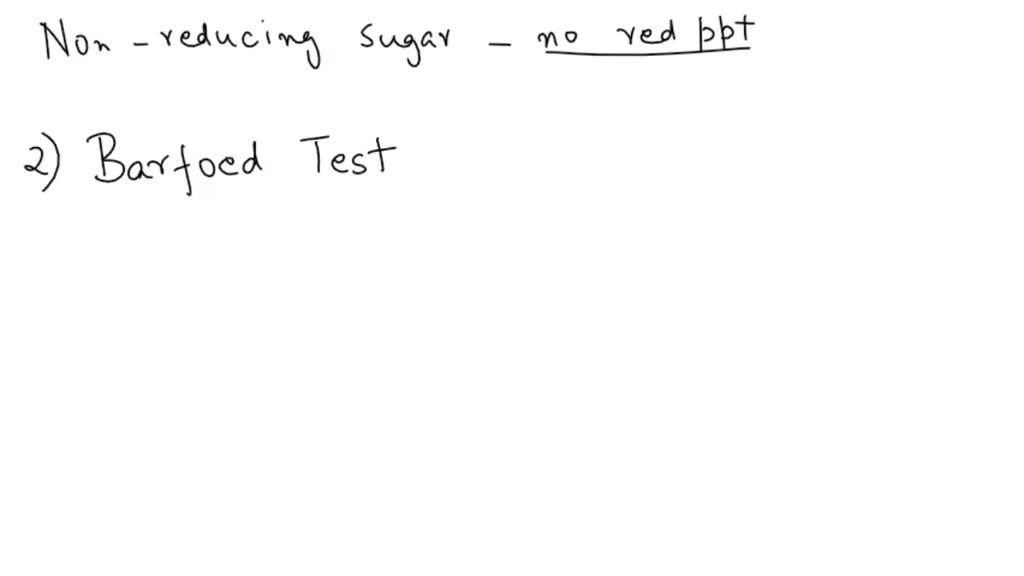 Non-reducing sugar - no red ppt
2) Barfoed Test